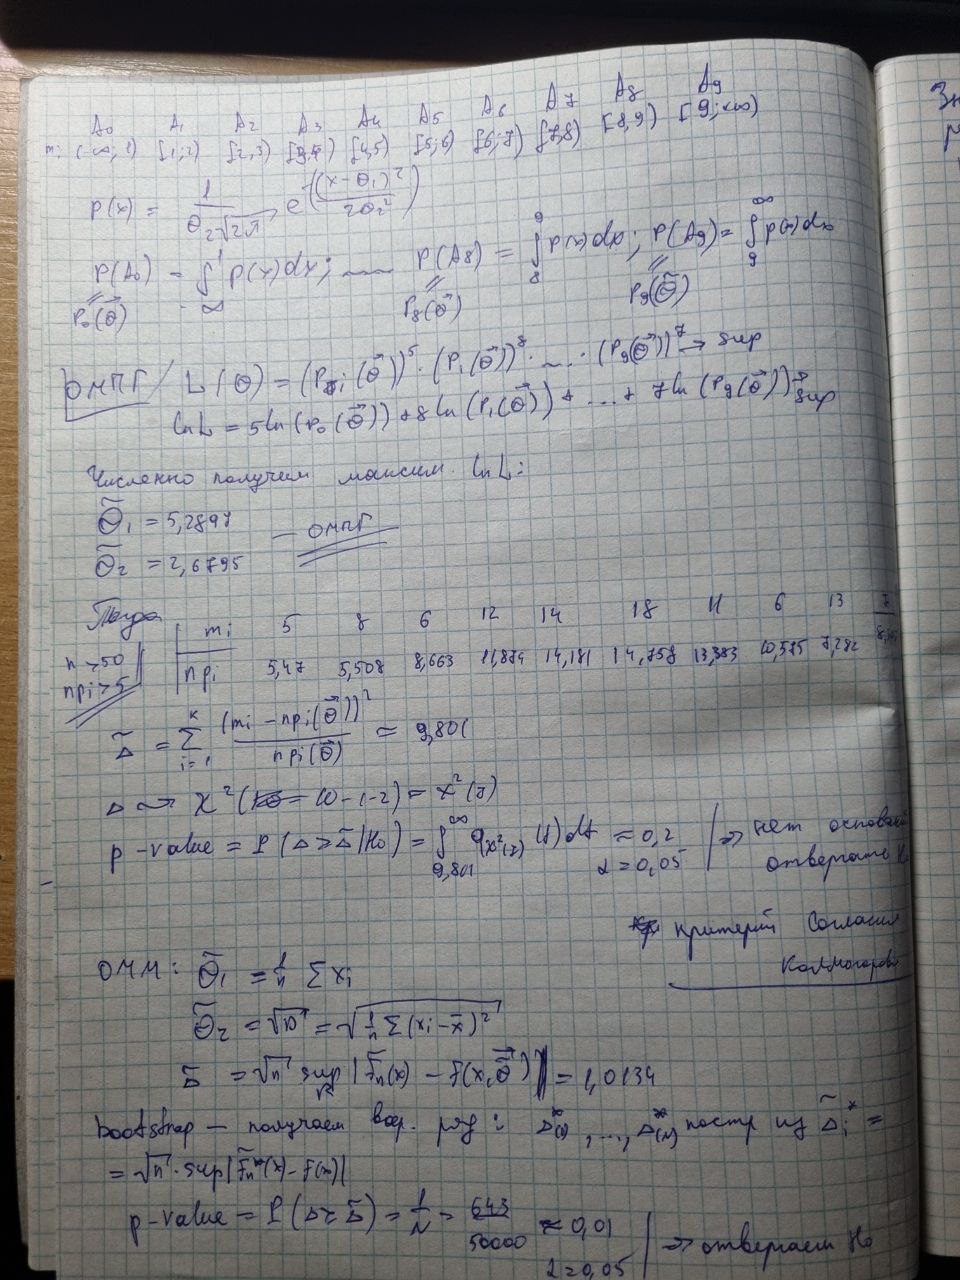 A₀ A₁ A₂ A₃ A₄ A₅ A₆ A₇ A₈ A₉
(-∞; 1) [1; 2) [2, 3) [3,4) [4,5) [5; 6) [6; 7) [7,8) [8,9) [9; +∞)
p(x) = 1/(θ₂√2π) e^(-(x-θ₁)²/2θ₂²)
P(A₀) = ∫₋∞¹ p(x)dx; ... P(A8) = ∫₈⁹ p(x)dx; P(A9) = ∫₉^∞ p(x)dx
P₀(θ⃗) P₈(θ⃗) P₉(θ⃗)
ОМПГ / L(θ) = (P₀(θ⃗))⁵ · (P₁(θ⃗))⁸ · ... · (P₉(θ⃗))⁷ → sup
ln L = 5 ln(P₀(θ⃗)) + 8 ln(P₁(θ⃗)) + ... + 7 ln(P₉(θ⃗)) → sup
Численно получем максим. ln L:
θ̃₁ = 5,2897
θ̃₂ = 2,6795 — ОМПГ
Тогда mᵢ 5 8 6 12 14 18 11 6 13 7
n > 50 npᵢ 5,47 5,508 8,663 11,874 14,181 14,758 13,383 10,575 7,282
npᵢ > 5
Δ̃ = Σᵢ₌₁ᵏ (mᵢ - npᵢ(θ⃗))²/npᵢ(θ⃗) = 9,801
Δ ⇝ χ²(10-1-2) = χ²(7)
p-value = P(Δ ≥ Δ̃|H₀) = ∫₉,₈₀₁^∞ q_χ²(7)(t)dt ≈ 0,2 ⇒ нет основан
α = 0,05 отвергать H₀
критерий Согласия
Колмогорова
ОММ: θ̃₁ = 1/n Σ xᵢ
θ̃₂ = √D = √(1/n Σ(xᵢ - x̄)²)
Δ̃ = √n sup |F̃ₙ(x) - F(x, θ̃⃗)| = 1,0134
bootstrap — получаем вар. ряд: Δ*₍₁₎, ..., Δ*₍N₎ постр из Δ̃ᵢ* =
= √n · sup|F̃ₙ*(x) - F(x)|
p-value = P(Δ ≥ Δ̃) = 1/N = 643/50000 ≈ 0,01
α = 0,05 ⇒ отвергаем H₀
Зн